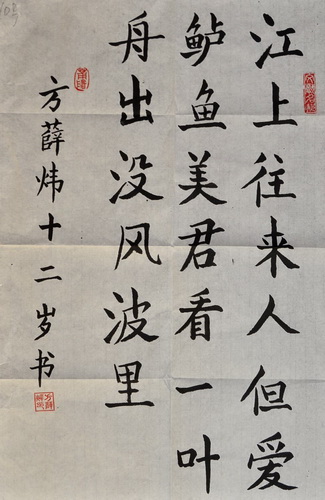 江上往来人但爱
鲈鱼美君看一叶
舟出没风波里
方薛炜十二岁书